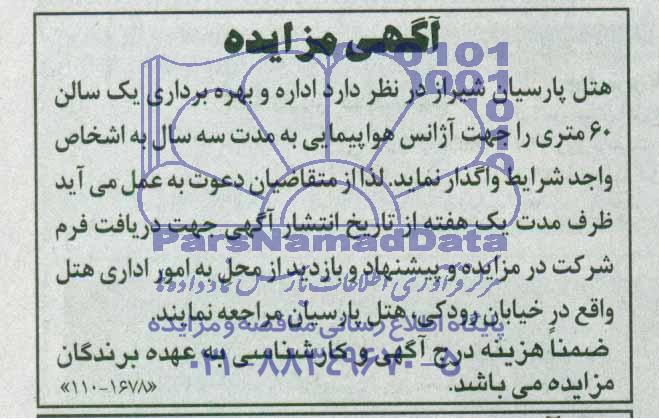 آگهی مزایده
هتل پارسیان شیراز در نظر دارد اداره و بهره برداری یک سالن
۶۰ متری را جهت آژانس هواپیمایی به مدت سه سال به اشخاص
واجد شرایط واگذار نماید. لذا از متقاضیان دعوت به عمل می آید
ظرف مدت یک هفته از تاریخ انتشار آگهی جهت دریافت فرم
ParsNamadData
شرکت در مزایده و پیشنهاد و بازدید از محل به امور اداری هتل
واقع در خیابان رودکی، هتل پارسیان مراجعه نمایند.
پایگاه اطلاع رسانی مناقصه و مزایده
ضمناً هزینه درج آگهی و کارشناسی به عهده برندگان
۰۲۱-۸۸۳۴۹۶۷۰-۵
مزایده می باشد.
«۱۱۰-۱۶۷۸»